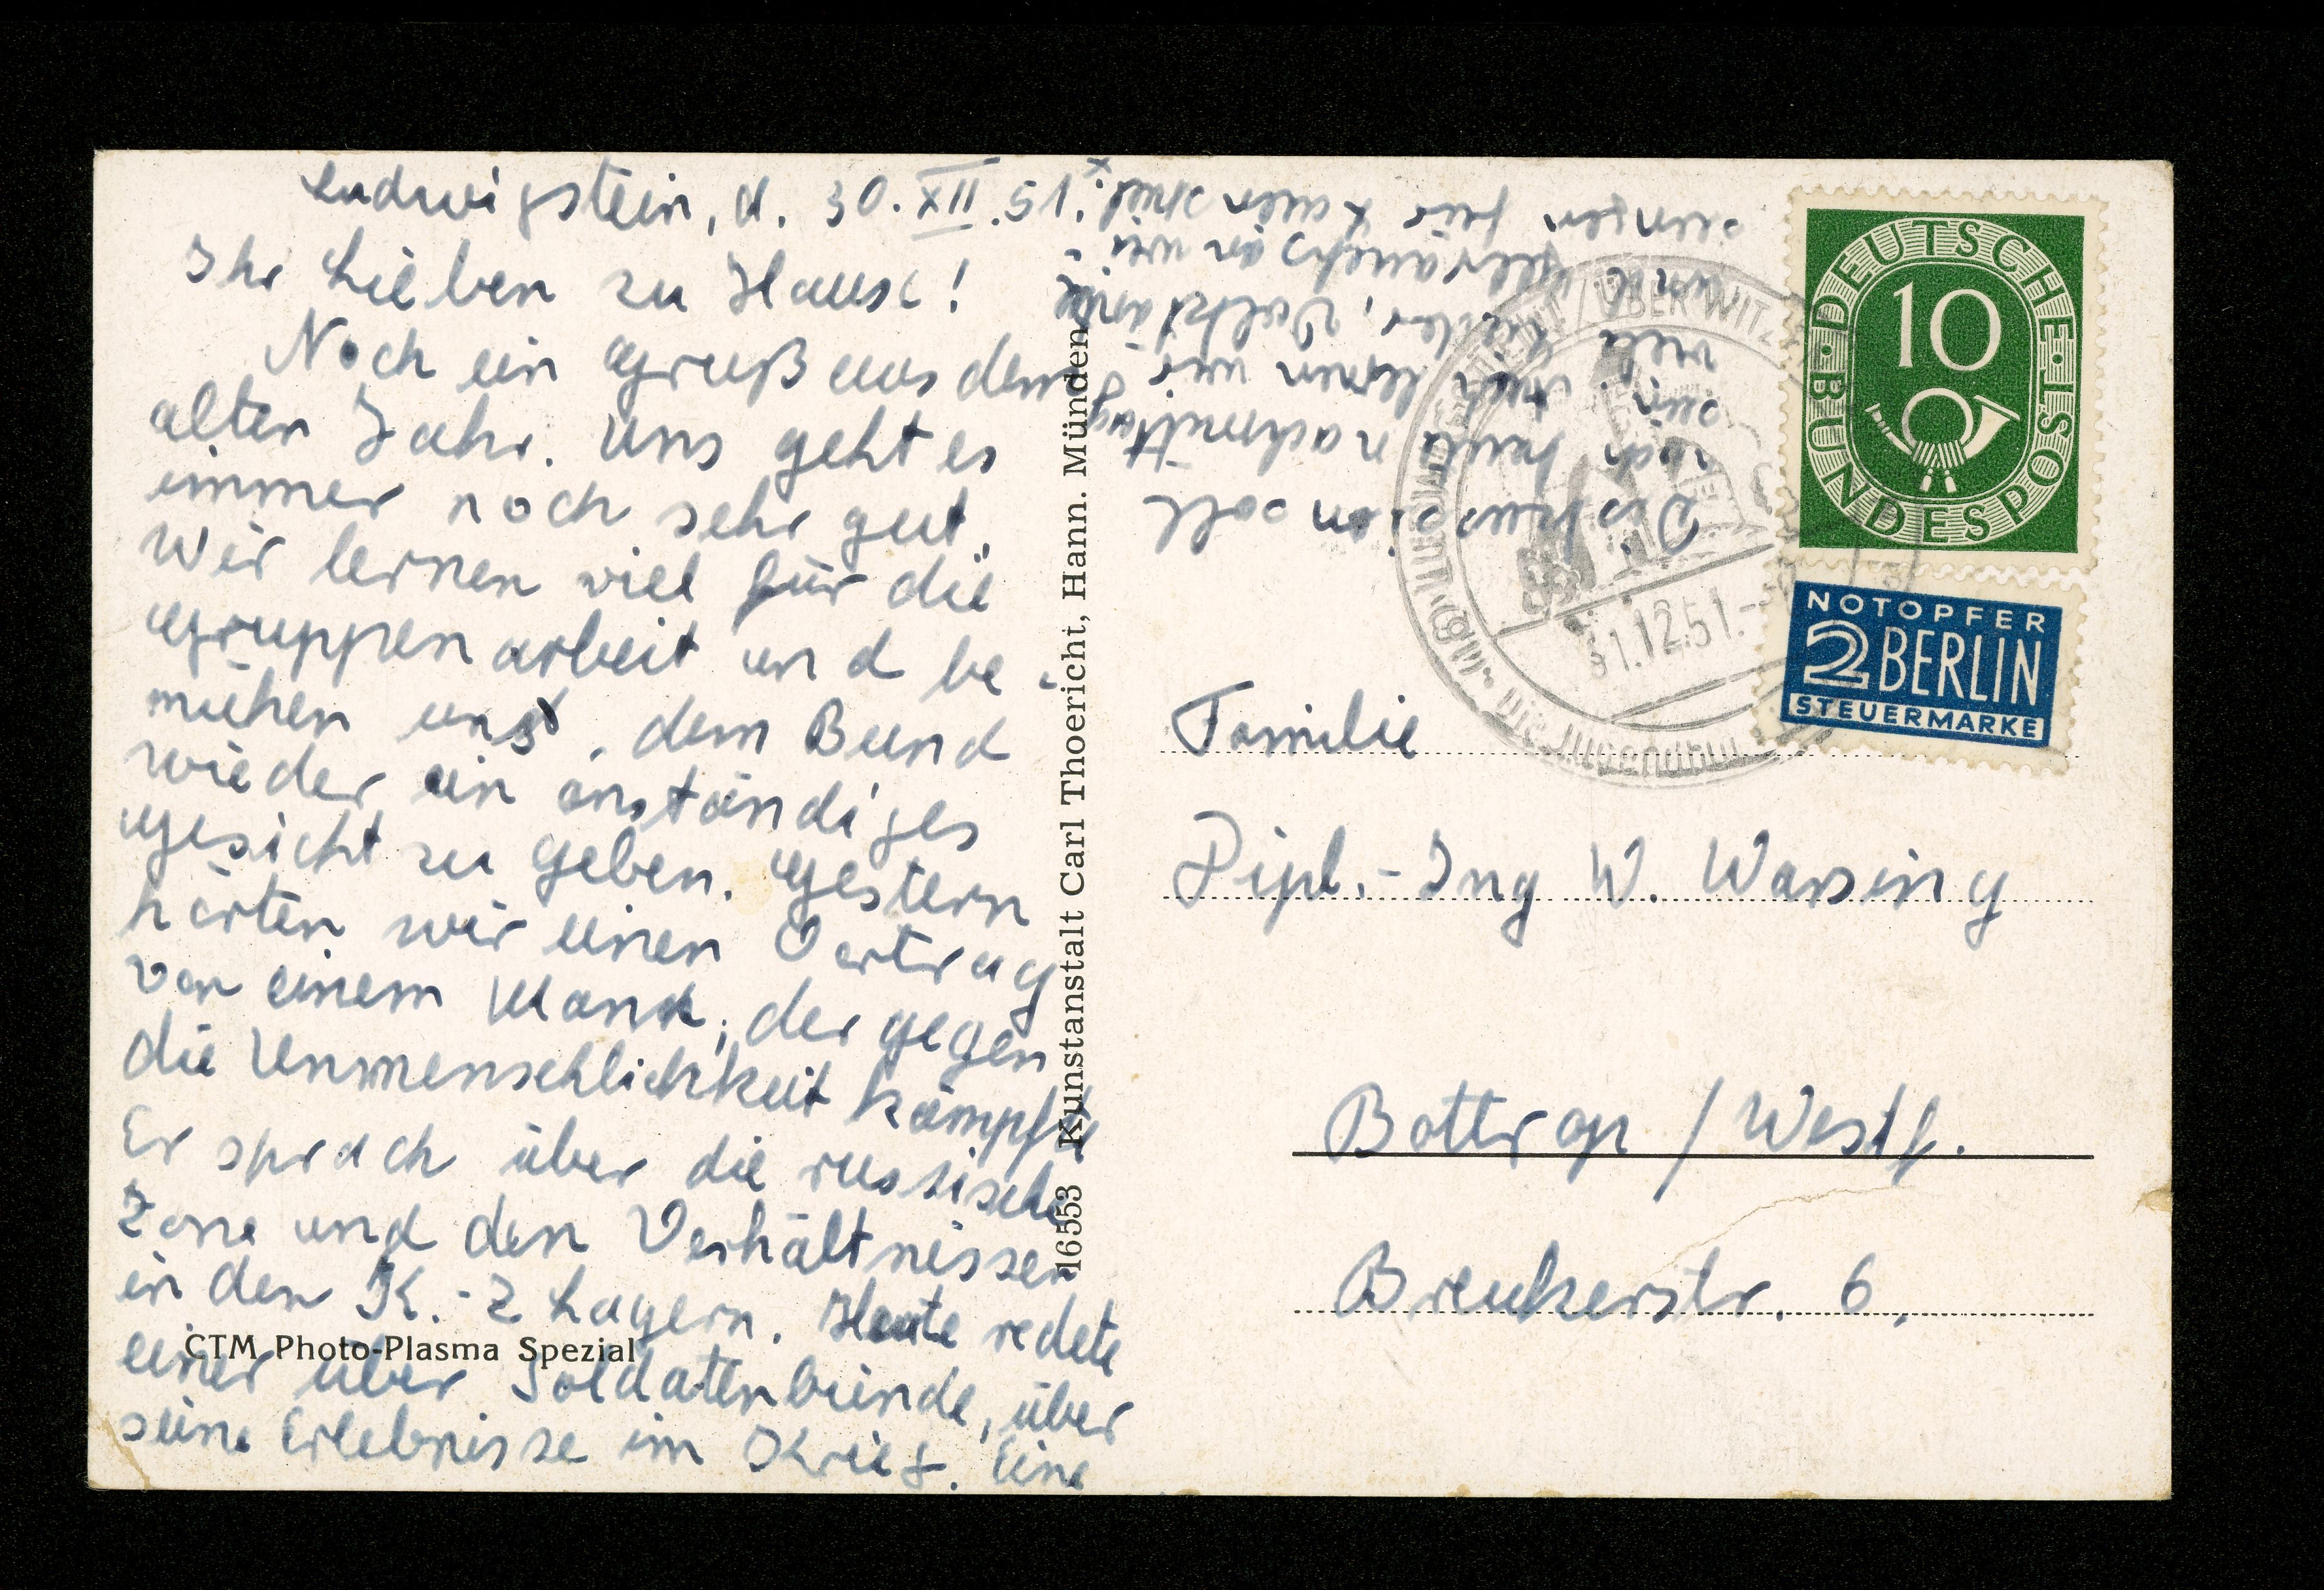 Ludwigstein, d. 30. XII. 51.
Ihr Lieben zu Hause!
Noch ein Gruß aus dem
alten Jahr. Uns geht es
immer noch sehr gut.
Wir lernen viel für die
Gruppenarbeit und be-
mühen uns, dem Bund
wieder ein anständiges
Gesicht zu geben. Gestern
hörten wir einen Vortrag
von einem Mann, der gegen
die Unmenschlichkeit kämpft
Er sprach über die russische
Zone und den Verhältnissen
in den K.-Z Lagern. Heute redete
einer über Soldatenbünde, über
seine Erlebnisse im Krieg. Eine
Diskussion soll
noch heute nachmittag
sein. Auch lernen wir
viel Lieder, Volkstänze
und
für
16553 Kunstanstalt Carl Thoericht, Hann. Münden
CTM Photo-Plasma Spezial
DEUTSCHE BUNDESPOST
10
NOTOPFER
2 BERLIN
STEUERMARKE
ÜBER WITZ
31.12.51.-
(16)
Die Jugendburg
Familie
Dipl.-Ing W. Warsing
Bottrop / Westf.
Breukerstr. 6.